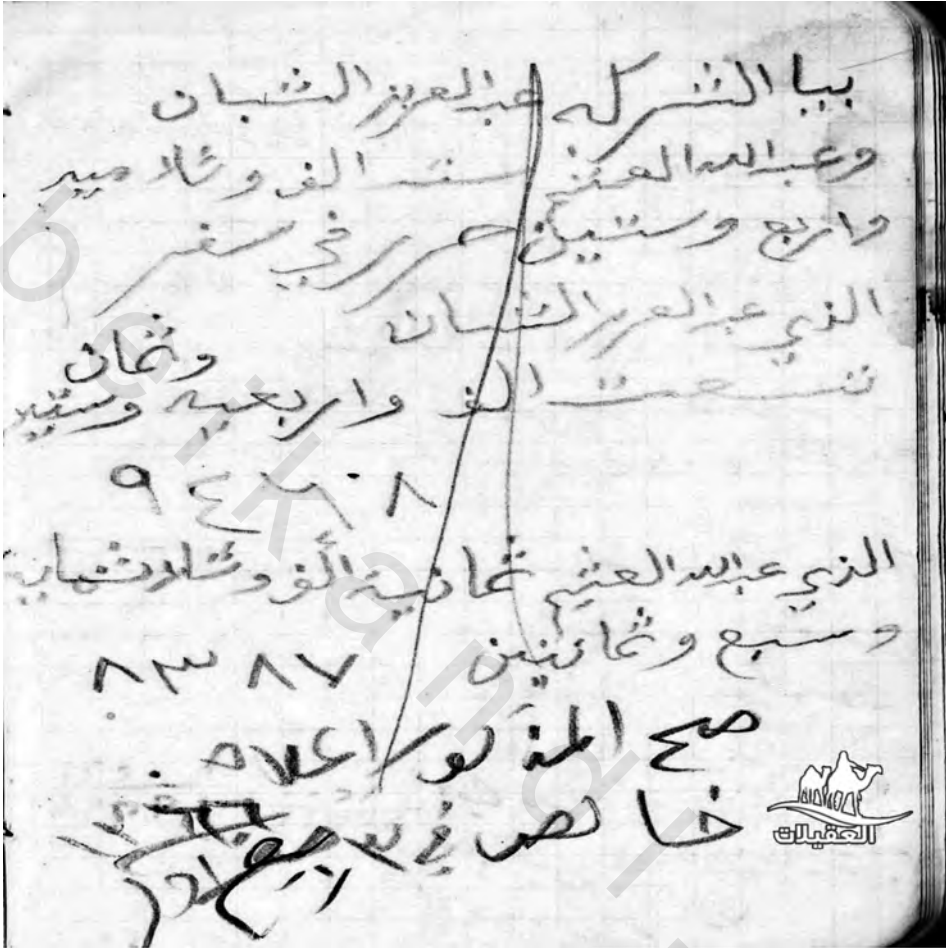 بيا الشركه عبدالعزيز الشبان
وعبدالله العثيم ستت الف وثلاميه
واربع وستين حرر في سفر
الذي عبدالعزيز الشبان
وثمان
تسعت الف واربعيه وستين
٩٤٦٨
الذي عبدالله العثيم ثمانية الف وثلاثمايه
وسبع وثمانين ٨٣٨٧
صح المذكور
خالص في
العقيلات
beikandi